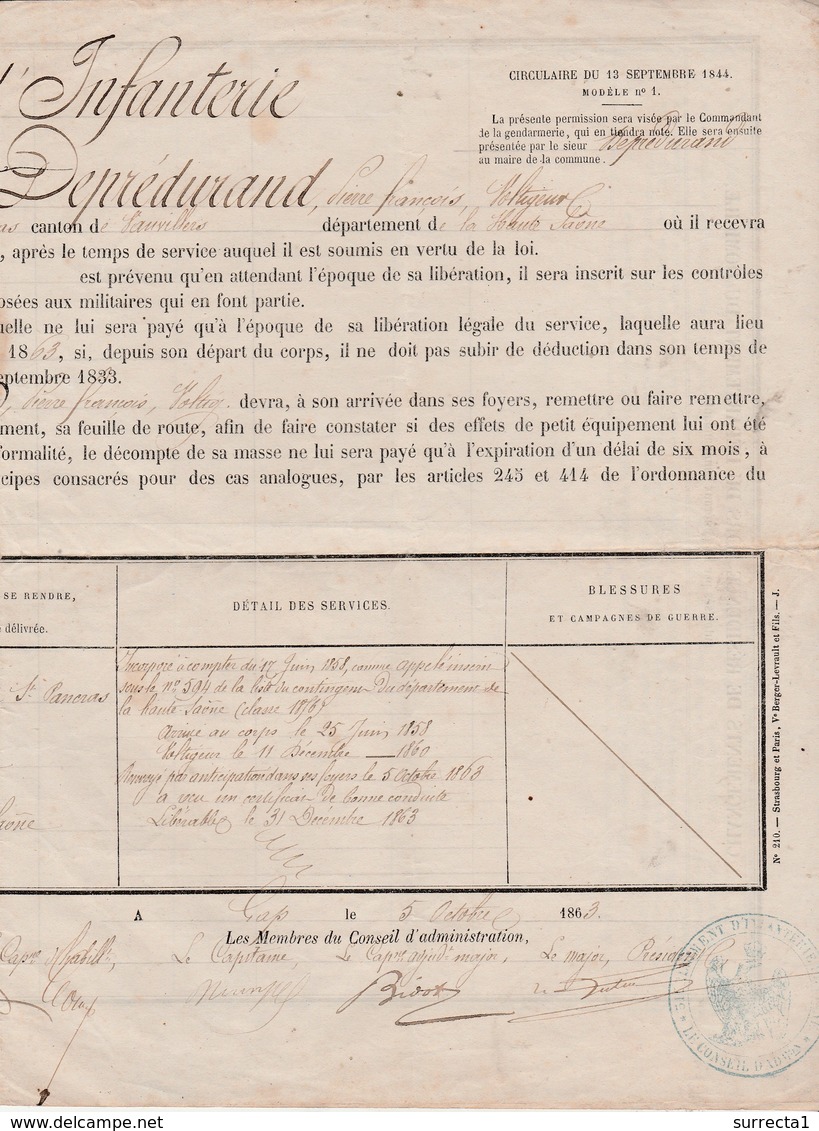 l'Infanterie
CIRCULAIRE DU 13 SEPTEMBRE 1844.
MODÈLE nº 1.
La présente permission sera visée par le Commandant
de la gendarmerie, qui en tiendra note. Elle sera ensuite
présentée par le sieur Deprédurand
au maire de la commune.
Deprédurand, Pierre françois, Voltigeur
as canton de Vauvillers département de la Haute Saône où il recevra
, après le temps de service auquel il est soumis en vertu de la loi.
est prévenu qu'en attendant l'époque de sa libération, il sera inscrit sur les contrôles
osées aux militaires qui en font partie.
uelle ne lui sera payé qu'à l'époque de sa libération légale du service, laquelle aura lieu
1863, si, depuis son départ du corps, il ne doit pas subir de déduction dans son temps de
eptembre 1833.
, Pierre françois, Voltig. devra, à son arrivée dans ses foyers, remettre ou faire remettre,
ment, sa feuille de route, afin de faire constater si des effets de petit équipement lui ont été
formalité, le décompte de sa masse ne lui sera payé qu'à l'expiration d'un délai de six mois, à
cipes consacrés pour des cas analogues, par les articles 245 et 414 de l'ordonnance du
SE RENDRE,
délivrée.
DÉTAIL DES SERVICES.
BLESSURES
ET CAMPAGNES DE GUERRE.
St Pancras
aône
Incorporé à compter du 17 Juin 1858, comme appelé inscrit
sous le nº 594 de la liste du contingent du département de
la Haute Saône (classe 1856)
arrivé au corps le 25 Juin 1858
Voltigeur le 11 Décembre 1860
Renvoyé par anticipation dans ses foyers le 5 Octobre 1863
a reçu un certificat de bonne conduite
Libérable le 31 Décembre 1863
Nº 210. — Strasbourg et Paris, Vº Berger-Levrault et Fils. — J.
A Gap le 5 Octobre 1863.
Les Membres du Conseil d'administration,
Capne d'habillt, Le Capitaine, Le Capne adjudt major, Le major, Président
Bidot
RÉGIMENT D'INFANTERIE
LE CONSEIL D'ADMON
surrecta1